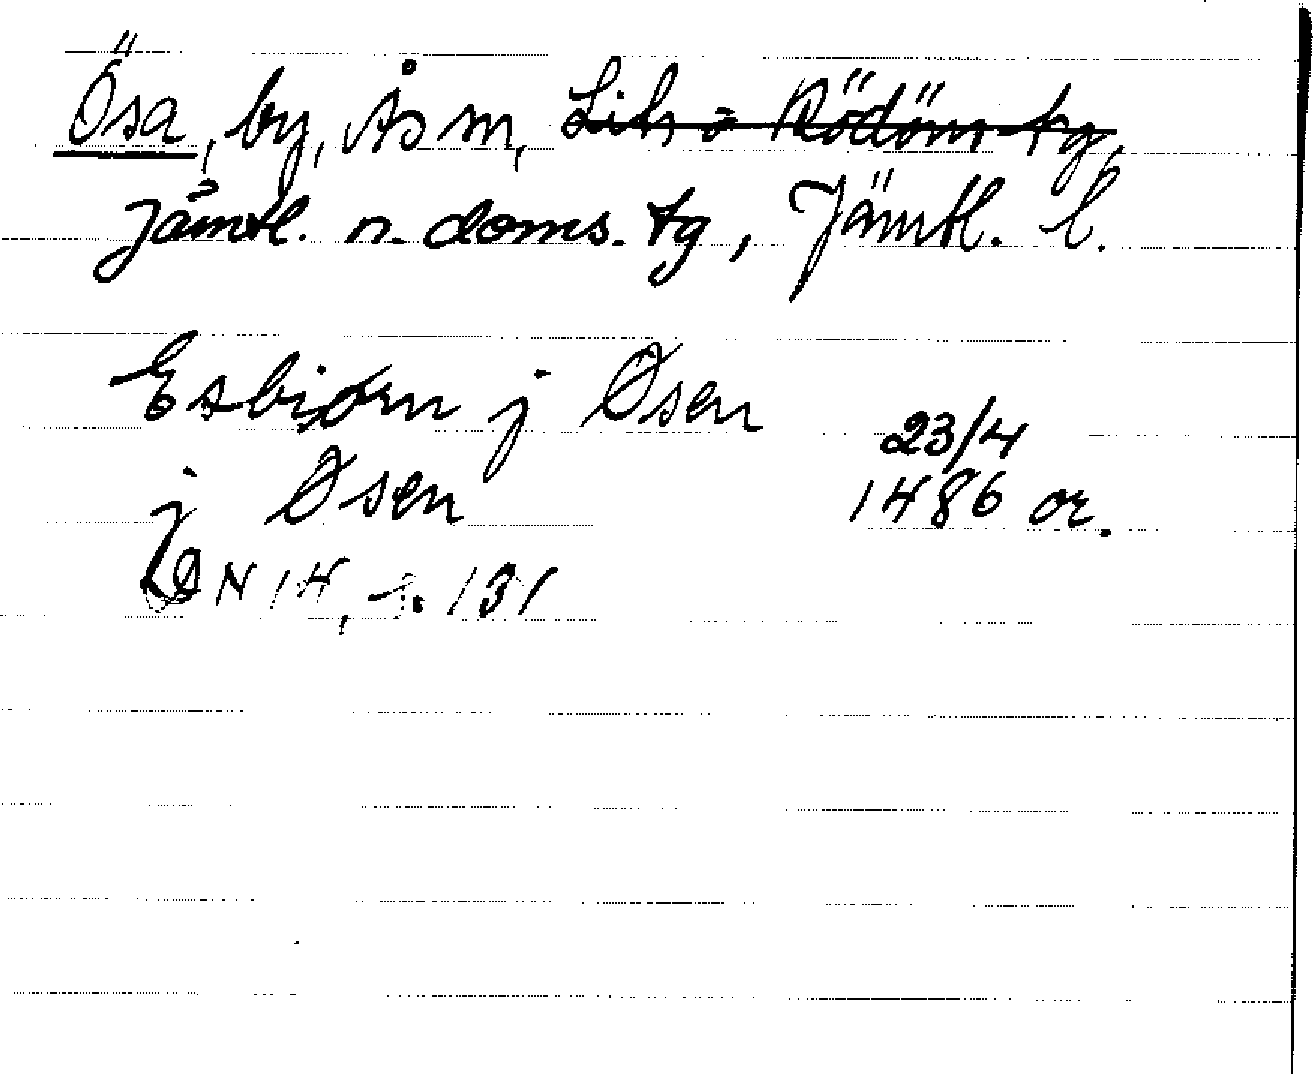 Ösa, by, Ås sn, ~~Lits o Rödöns tg,~~
Jämtl. n. doms. tg, Jämtl. l.
Esbiørn j Øsen
23/4
j Øsen
1486 or.
DN 14, s. 131